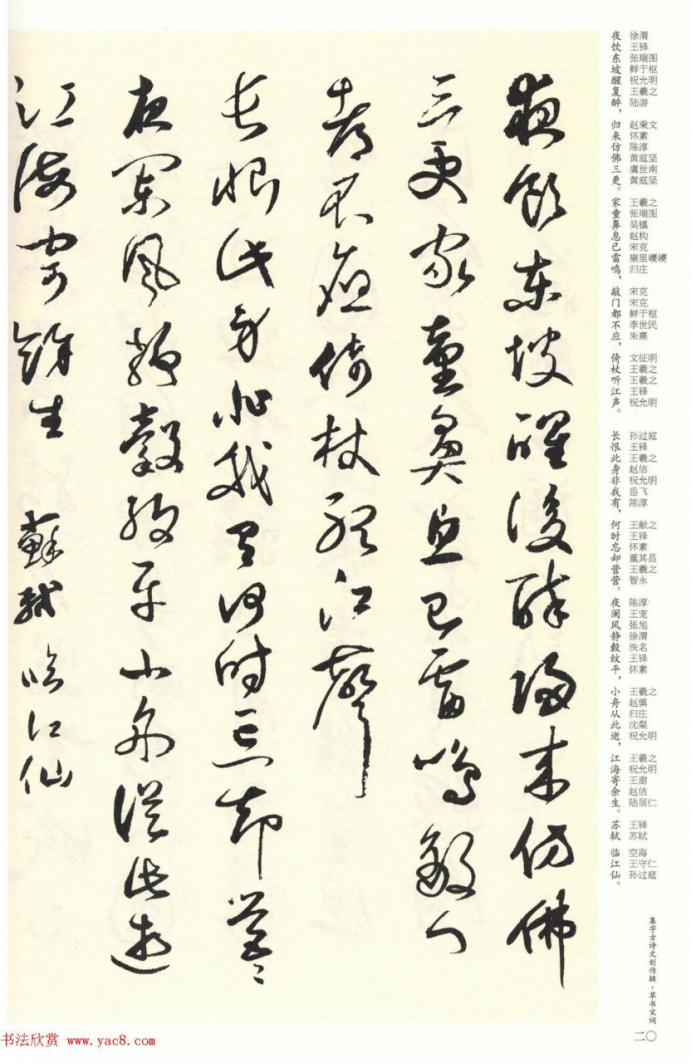 夜飲東坡醒復醉歸來仿佛
三更家童鼻息已雷鳴敲門
都不應倚杖聽江聲
長恨此身非我有何時忘却營々
夜闌風靜縠紋平小舟從此逝
江海寄餘生 蘇軾 臨江仙
夜饮东坡醒复醉，
徐渭 王铎 张瑞图 鲜于枢 祝允明 王羲之 陆游
归来仿佛三更。
赵秉文 怀素 陈淳 黄庭坚 虞世南 黄庭坚
家童鼻息已雷鸣，
王羲之 张瑞图 吴镇 赵构 宋克 康里巎巎 归庄
敲门都不应，
宋克 宋克 鲜于枢 李世民 朱熹
倚杖听江声。
文征明 王羲之 王羲之 王铎 祝允明
长恨此身非我有，
孙过庭 王铎 王羲之 赵佶 祝允明 岳飞 陈淳
何时忘却营营。
王献之 王铎 怀素 董其昌 王羲之 智永
夜阑风静縠纹平，
陈淳 王宠 张旭 徐渭 佚名 王铎 怀素
小舟从此逝，
王羲之 赵慎 归庄 沈粲 祝允明
江海寄余生。
王羲之 祝允明 王澍 赵佶 陆居仁
苏轼
王铎 苏轼
临江仙。
空海 王守仁 孙过庭
集字古诗文创作辑·草书宋词
二〇
书法欣赏 www.yac8.com